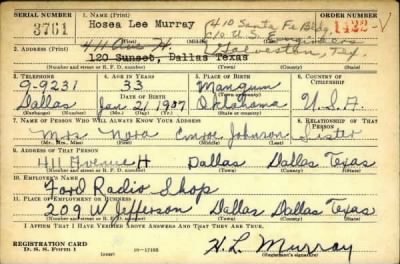 SERIAL NUMBER
1. NAME (Print)
ORDER NUMBER
3761
Hosea Lee Murray
410 Santa Fe Bldg.
1422-V
c/o U.S. Engineers
411 Ave H.
Galveston, Tex.
2. ADDRESS (Print)
120 Sunset, Dallas Texas
(Number and street or R. F. D. number)
3. TELEPHONE
4. AGE IN YEARS
5. PLACE OF BIRTH
6. COUNTRY OF CITIZENSHIP
9-9231
33
Mangum
DATE OF BIRTH
Dallas
Jan 21 1907
Oklahoma
U.S.A.
(Mo.) (Day) (Yr.)
7. NAME OF PERSON WHO WILL ALWAYS KNOW YOUR ADDRESS
8. RELATIONSHIP OF THAT PERSON
Mrs. Nora Johnson
Sister
(Mr., Mrs., Miss) (First) (Middle) (Last)
9. ADDRESS OF THAT PERSON
411 Avenue H Dallas Dallas Texas
(Number and street or R. F. D. number) (Town) (County) (State)
10. EMPLOYER'S NAME
Ford Radio Shop
11. PLACE OF EMPLOYMENT OR BUSINESS
209 W Jefferson Dallas Dallas Texas
(Number and street or R. F. D. number) (Town) (County) (State)
I AFFIRM THAT I HAVE VERIFIED ABOVE ANSWERS AND THAT THEY ARE TRUE.
REGISTRATION CARD
D. S. S. FORM 1
H. L. Murray